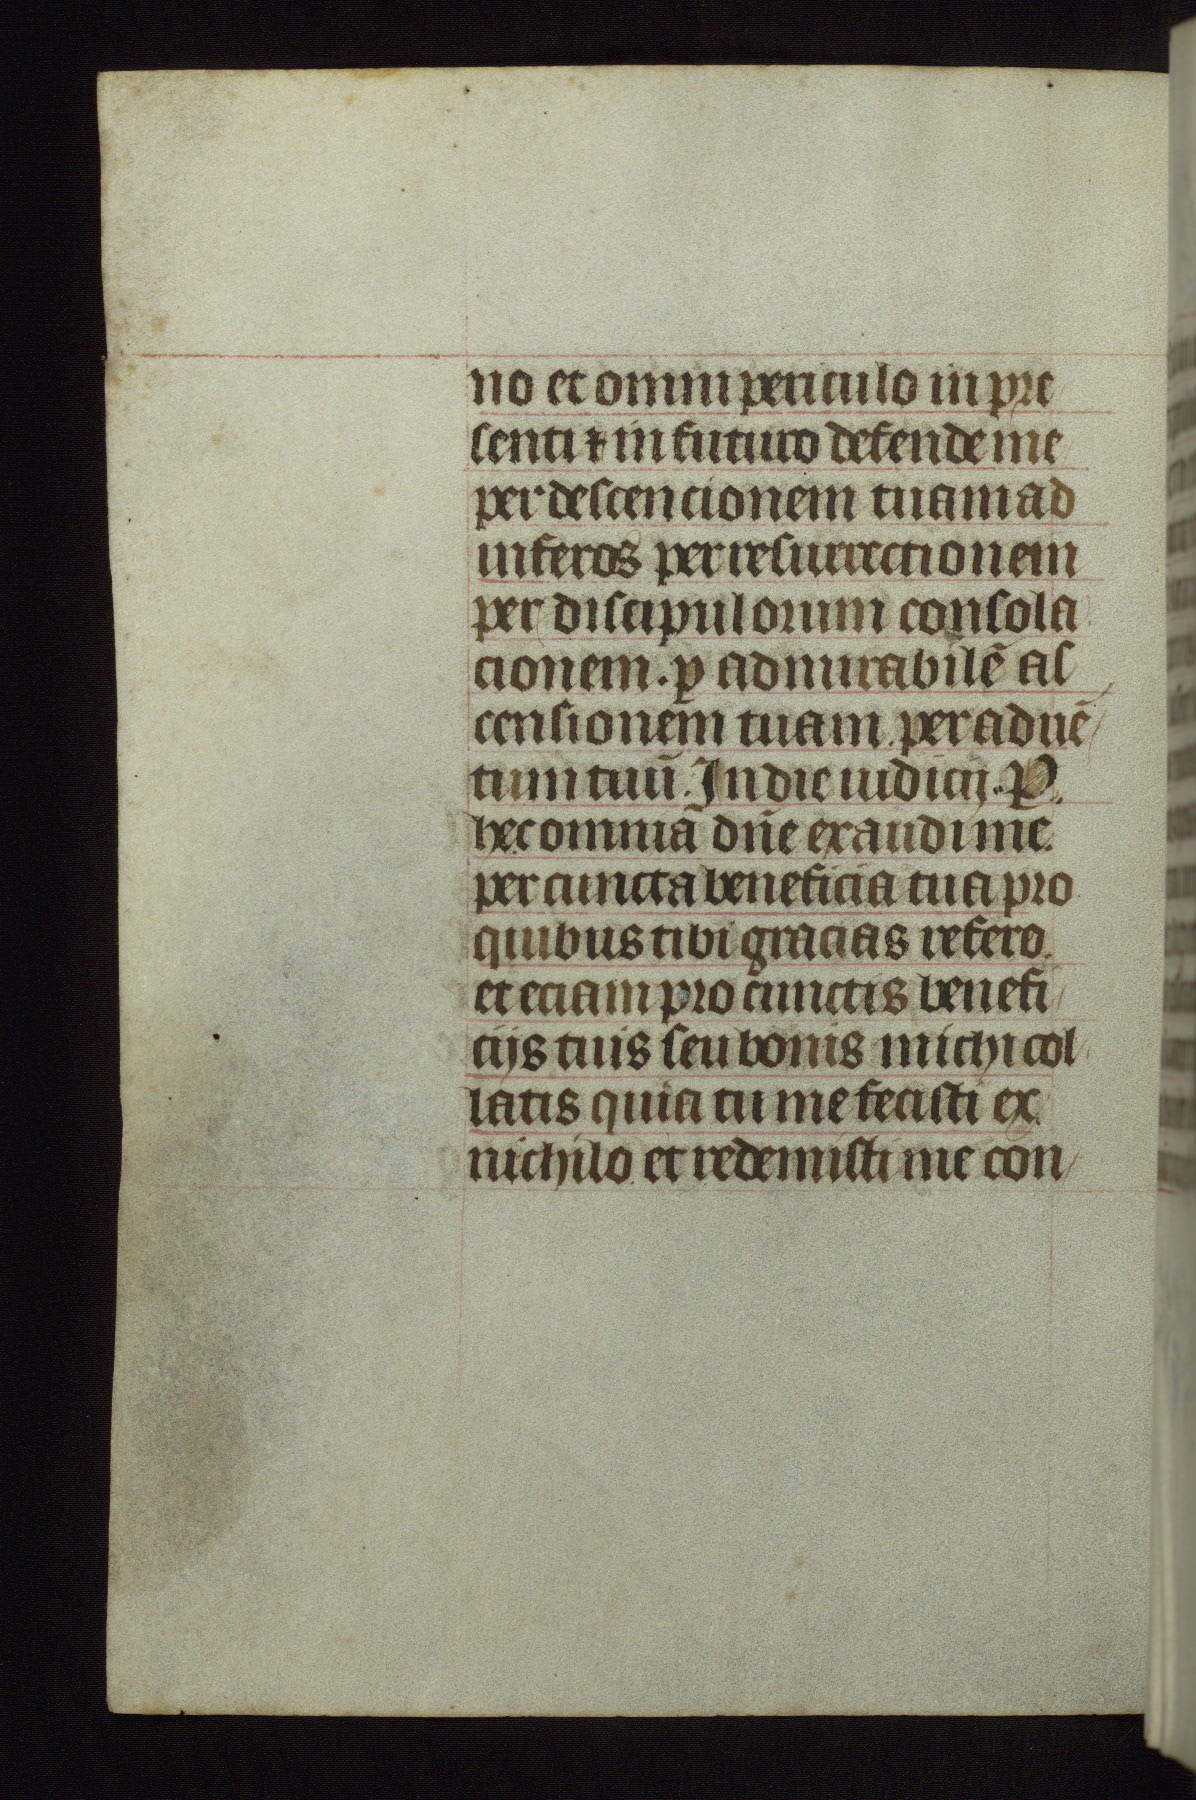 no et omni periculo in pre
senti ⁊ in futuro defende me
per descencionem tuam ad
inferos per resurrectionem
per discipulorum consola
cionem. ꝑ admirabilē as
censionem tuam. per aduē
tum tuū. In die iudicij. P
hec omnia dn̄e exaudi me.
per cuncta beneficia tua pro
quibus tibi gracias refero.
et eciam pro cunctis benefi
cijs tuis seu bonis michi col
latis quia tu me fecisti ex
nichilo et redemisti me con